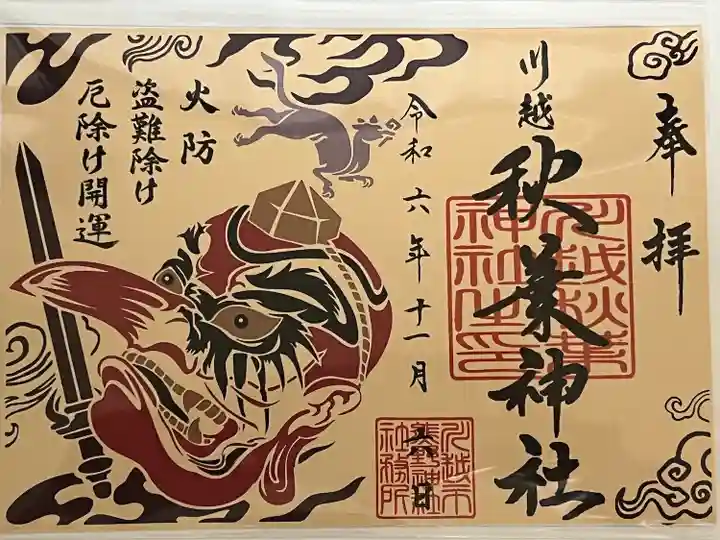 奉拝
川越
秋葉神社
川越秋葉神社之印
令和六年十一月
六日
川越市熊野神社社務所
火防
盗難除け
厄除け開運